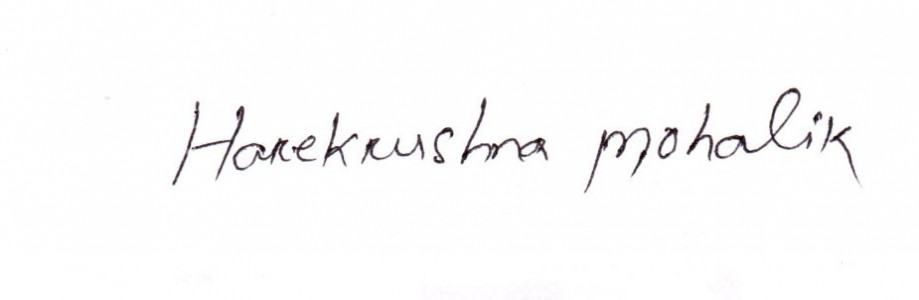 Harekrushna mohalik